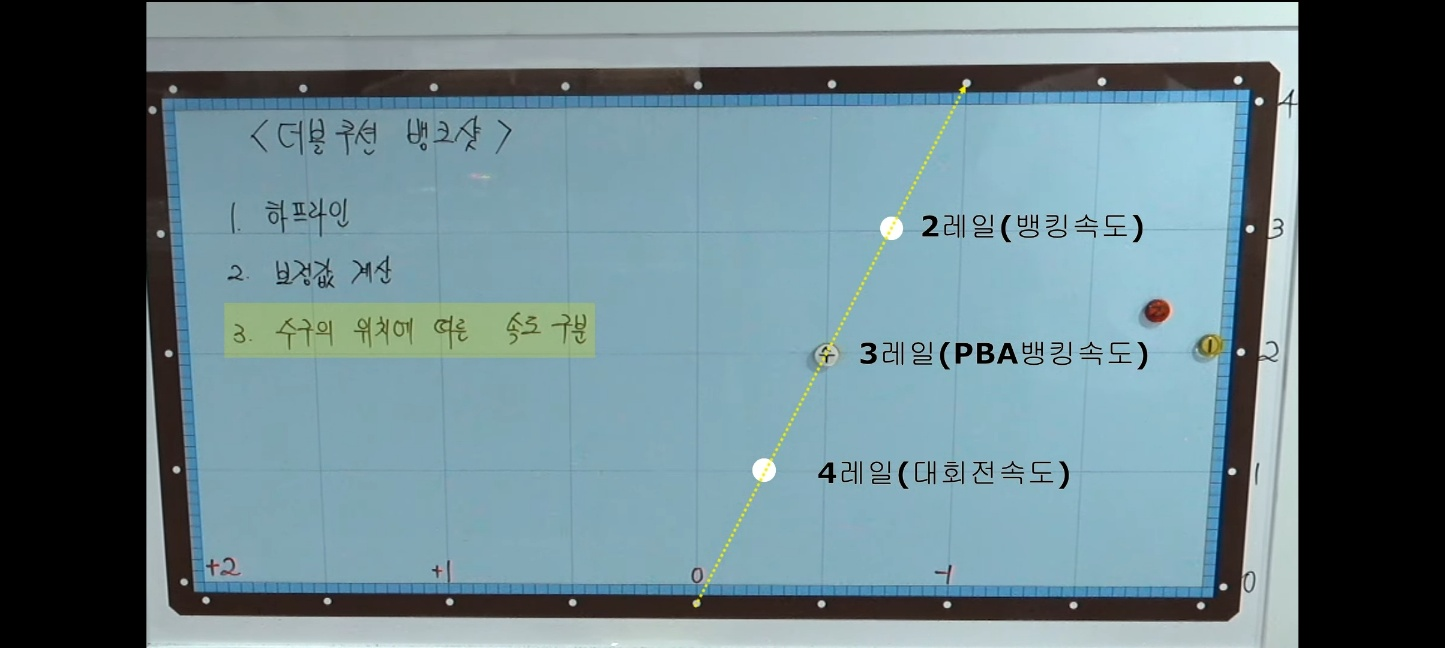 <더블쿠션 뱅크샷>
1. 하프라인
2. 보정값 계산
3. 수구의 위치에 따른 속도 구분
2레일(뱅킹속도)
3레일(PBA뱅킹속도)
4레일(대회전속도)
수
2
1
4
3
2
1
0
+2 +1 0 -1